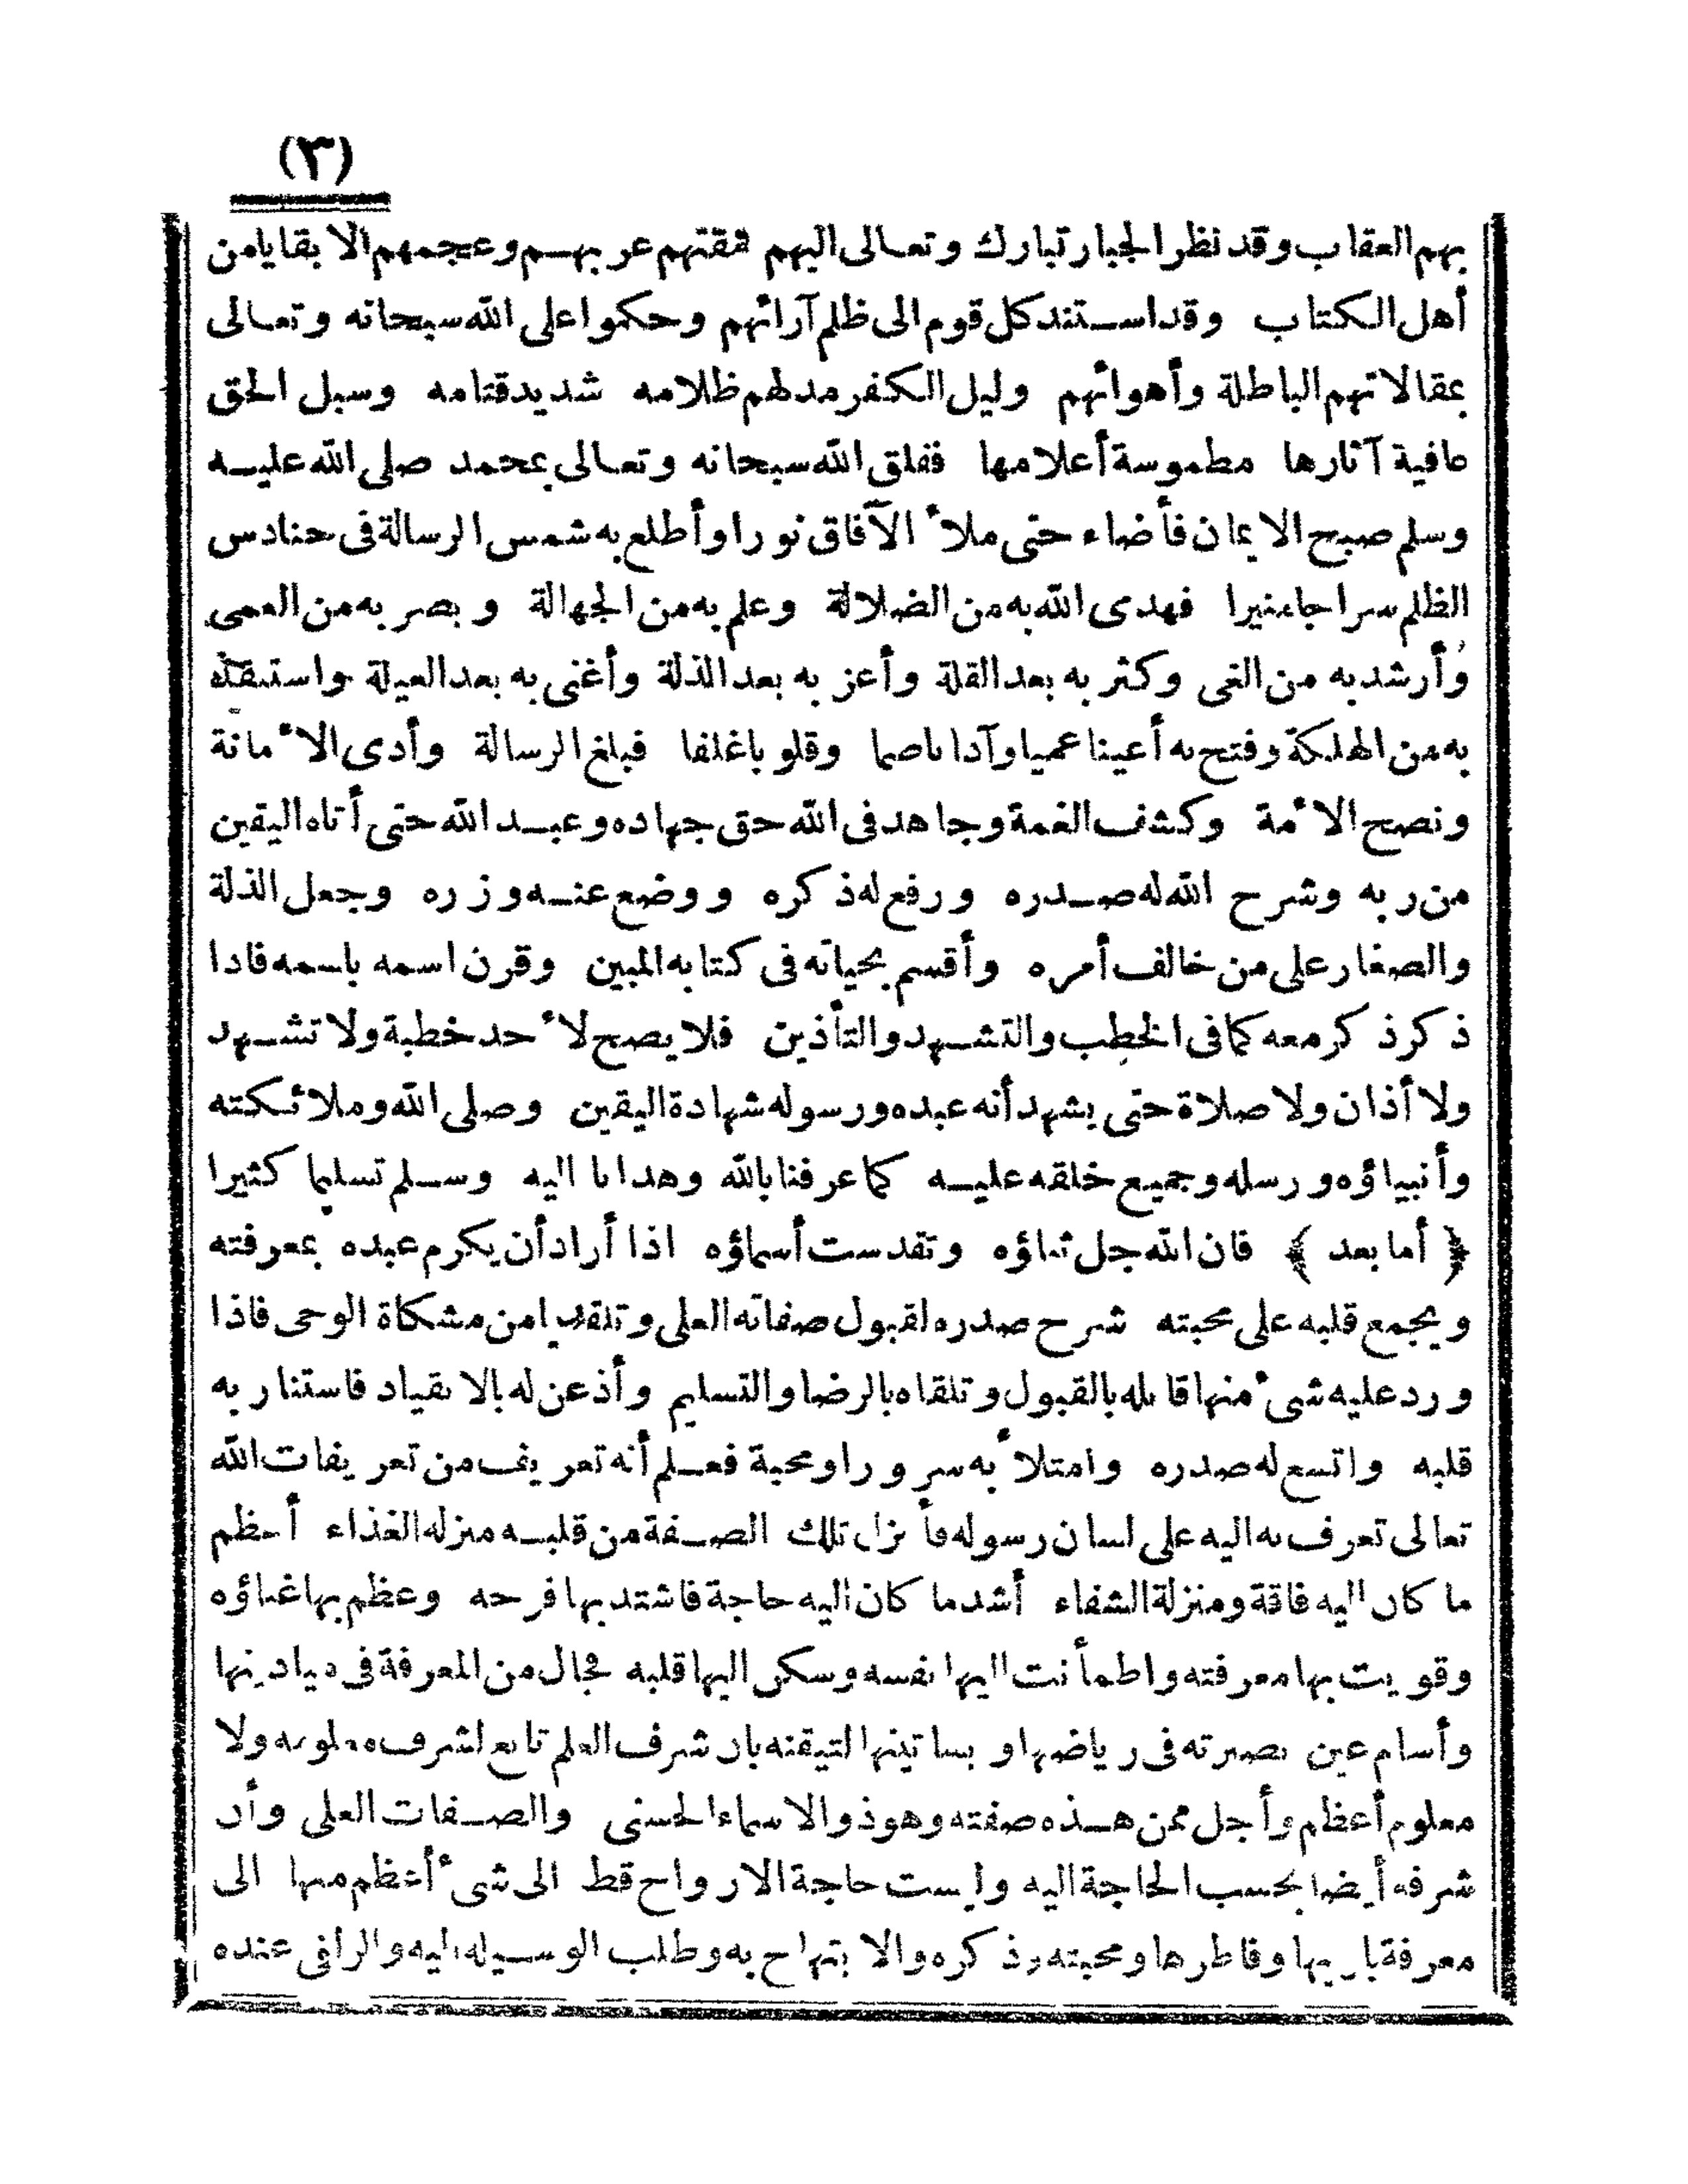 (٣)
بهم العقاب وقد نظر الجبار تبارك وتعالى اليهم فمقتهم عربهم وعجمهم الا بقايا من
أهل الكتاب وقد استند كل قوم الى ظلم آرائهم وحكموا على الله سبحانه وتعالى
بمقالاتهم الباطلة وأهوائهم وليل الكفر مدلهم ظلامه شديد قتامه وسبل الحق
عافية آثارها مطموسة أعلامها ففلق الله سبحانه وتعالى بمحمد صلى الله عليه
وسلم صبح الايمان فأضاء حتى ملأ الآفاق نورا وأطلع به شمس الرسالة فى حنادس
الظلم سراجا منيرا فهدى الله به من الضلالة وعلم به من الجهالة وبصر به من العمى
وأرشد به من الغى وكثر به بعد القلة وأعز به بعد الذلة وأغنى به بعد العيلة واستنقذ
به من الهلكة وفتح به أعينا عميا وآذانا صما وقلوبا غلفا فبلغ الرسالة وأدى الأمانة
ونصح الأمة وكشف الغمة وجاهد فى الله حق جهاده وعبد الله حتى أتاه اليقين
من ربه وشرح الله له صدره ورفع له ذكره ووضع عنه وزره وجعل الذلة
والصغار على من خالف أمره وأقسم بحياته فى كتابه المبين وقرن اسمه باسمه فاذا
ذكر ذكر معه كما فى الخطب والتشهد والتأذين فلا يصح لأحد خطبة ولا تشهد
ولا أذان ولا صلاة حتى يشهد أنه عبده ورسوله شهادة اليقين وصلى الله وملائكته
وأنبياؤه ورسله وجميع خلقه عليه كما عرفنا بالله وهدانا اليه وسلم تسليما كثيرا
﴿ أما بعد ﴾ فان الله جل ثناؤه وتقدست أسماؤه اذا أراد أن يكرم عبده بمعرفته
ويجمع قلبه على محبته شرح صدره لقبول صفاته العلى وتلقيها من مشكاة الوحى فاذا
ورد عليه شىء منها قابله بالقبول وتلقاه بالرضا والتسليم وأذعن له بالانقياد فاستنار به
قلبه واتسع له صدره وامتلأ به سرورا ومحبة فعلم أنه تعريف من تعريفات الله
تعالى تعرف به اليه على لسان رسوله فأنزل تلك الصفة من قلبه منزله الغذاء أعظم
ما كان اليه فاقة ومنزلة الشفاء أشد ما كان اليه حاجة فاشتد بها فرحه وعظم بها غناؤه
وقويت بها معرفته واطمأنت اليها نفسه وسكن اليها قلبه فجال من المعرفة فى ميادينها
وأسام عين بصيرته فى رياضها وبساتينها لتيقنه بان شرف العلم تابع لشرف معلومه ولا
معلوم أعظم وأجل ممن هذه صفته وهو ذو الاسماء الحسنى والصفات العلى وأن
شرفه أيضا بحسب الحاجة اليه وليست حاجة الارواح قط الى شىء أعظم منها الى
معرفة باريها وفاطرها ومحبته وذكره والابتهاج به وطلب الوسيله اليه والزلفى عنده